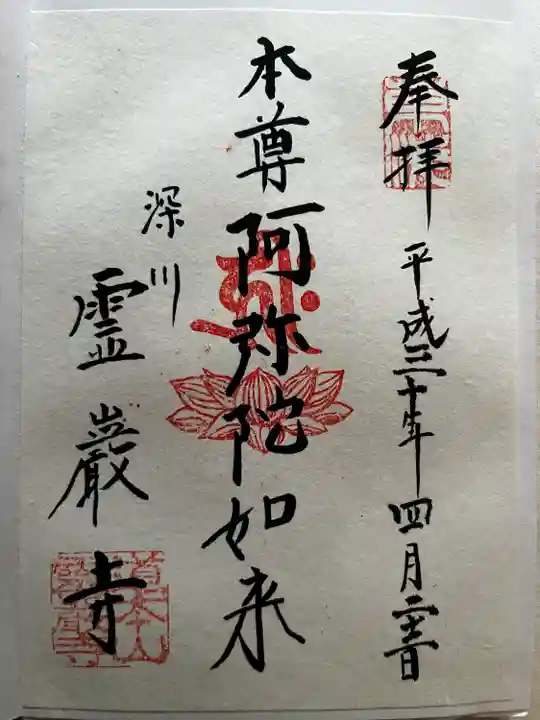 奉拝 平成三十年四月二十三日
本尊 阿弥陀如来
深川
霊巌寺